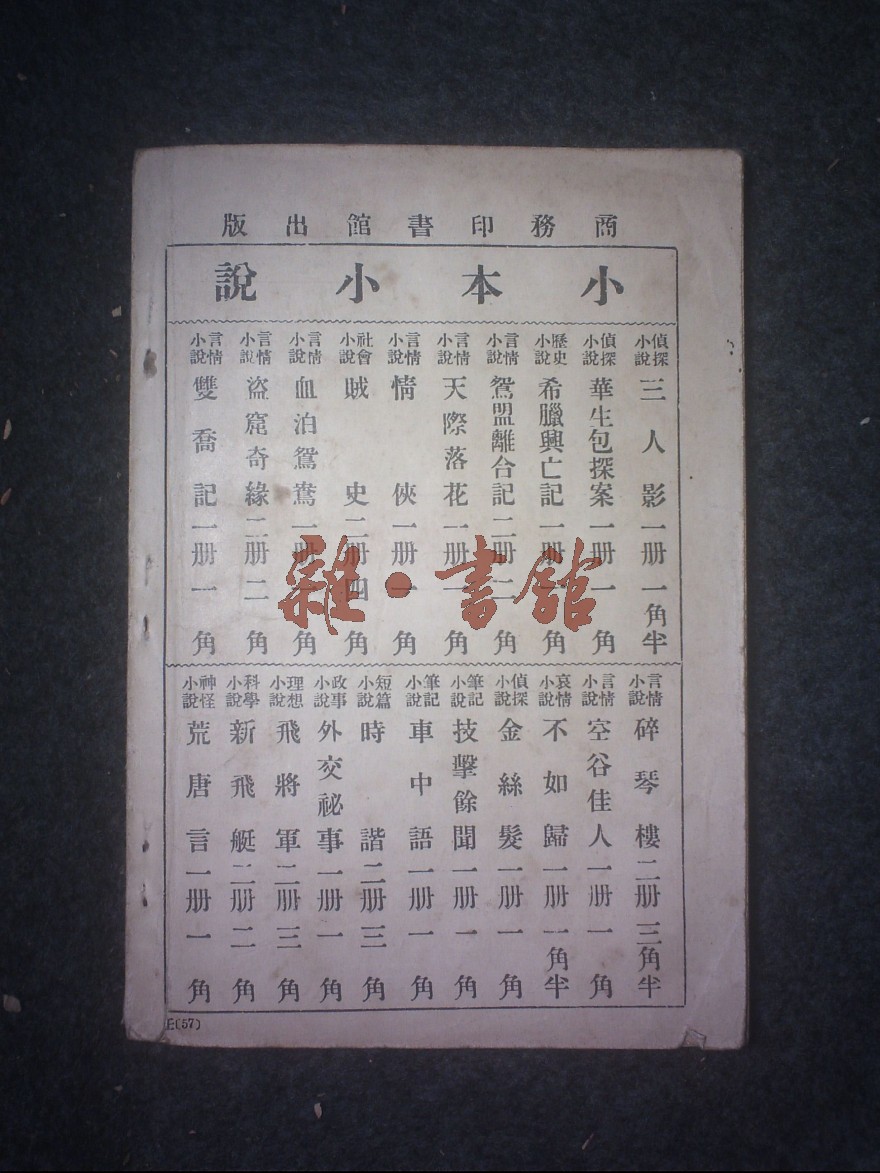 商務印書館出版
小本小說
偵探小說 三人影 一册 一角半
偵探小說 華生包探案 一册 一角
歷史小說 希臘興亡記 一册 一角
言情小說 鴛盟離合記 二册 二角
言情小說 天際落花 一册 一角
言情小說 情俠 一册 一角
社會小說 賊史 二册 四角
言情小說 血泊鴛鴦 一册 角
言情小說 盜窟奇緣 二册 二角
言情小說 雙喬記 一册 一角
言情小說 碎琴樓 二册 三角半
言情小說 空谷佳人 一册 一角
哀情小說 不如歸 一册 一角半
偵探小說 金絲髮 一册 一角
筆記小說 技擊餘聞 一册 一角
筆記小說 車中語 一册 一角
短篇小說 時諧 二册 三角
政事小說 外交祕事 一册 一角
理想小說 飛將軍 二册 三角
科學小說 新飛艇 二册 二角
神怪小說 荒唐言 一册 一角
(57)
雜·書館